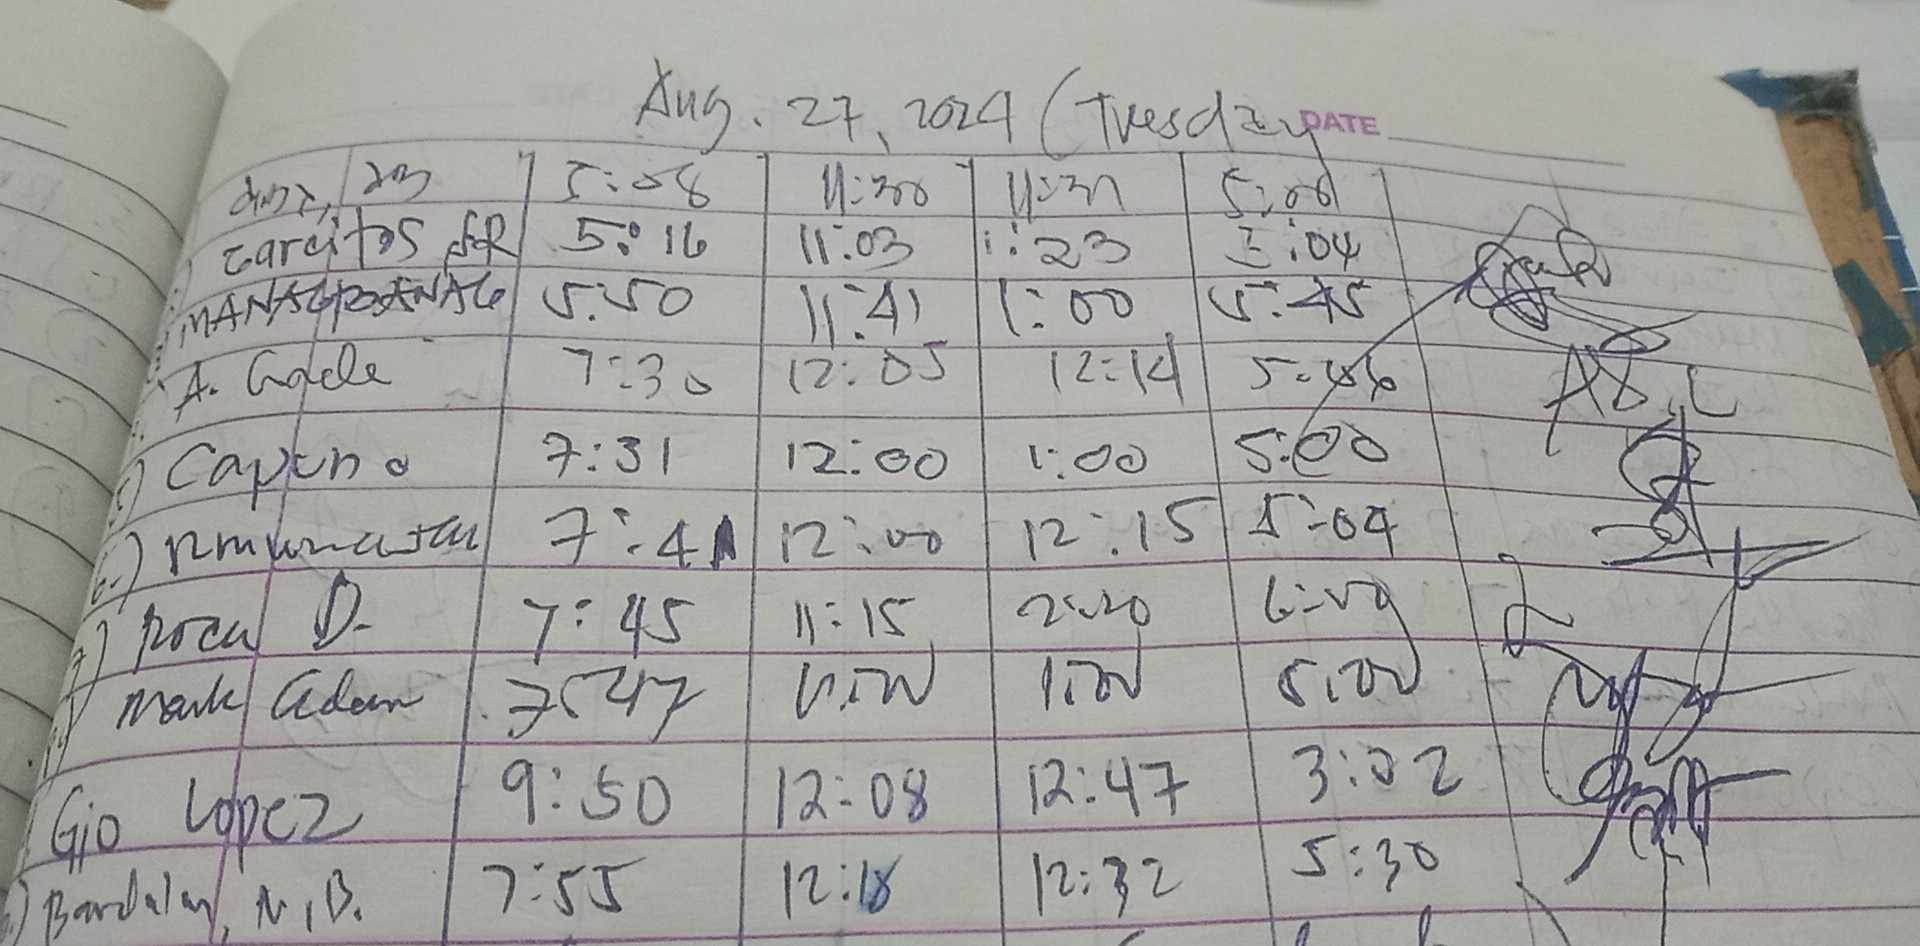 Aug. 27, 2024 (Tuesday
DATE
5:08 11:30 11:31 5:00
Zarcitos SR 5:16 11:03 1:23 5:04
MANAGBANAG 5:50 11:41 1:00 5:45
A. 7:30 12:05 12:14 5:46
5) Capuno 7:31 12:00 1:00 5:00
6.) 7:41 12:00 12:15 5:04
7) Roca D. 7:45 11:15 2:20 6:00
Mark Adam 7:47 11:00 1:00 5:00
Gio Lopez 9:50 12:08 12:47 3:02
Bandalan, N.B. 7:55 12:18 12:32 5:30